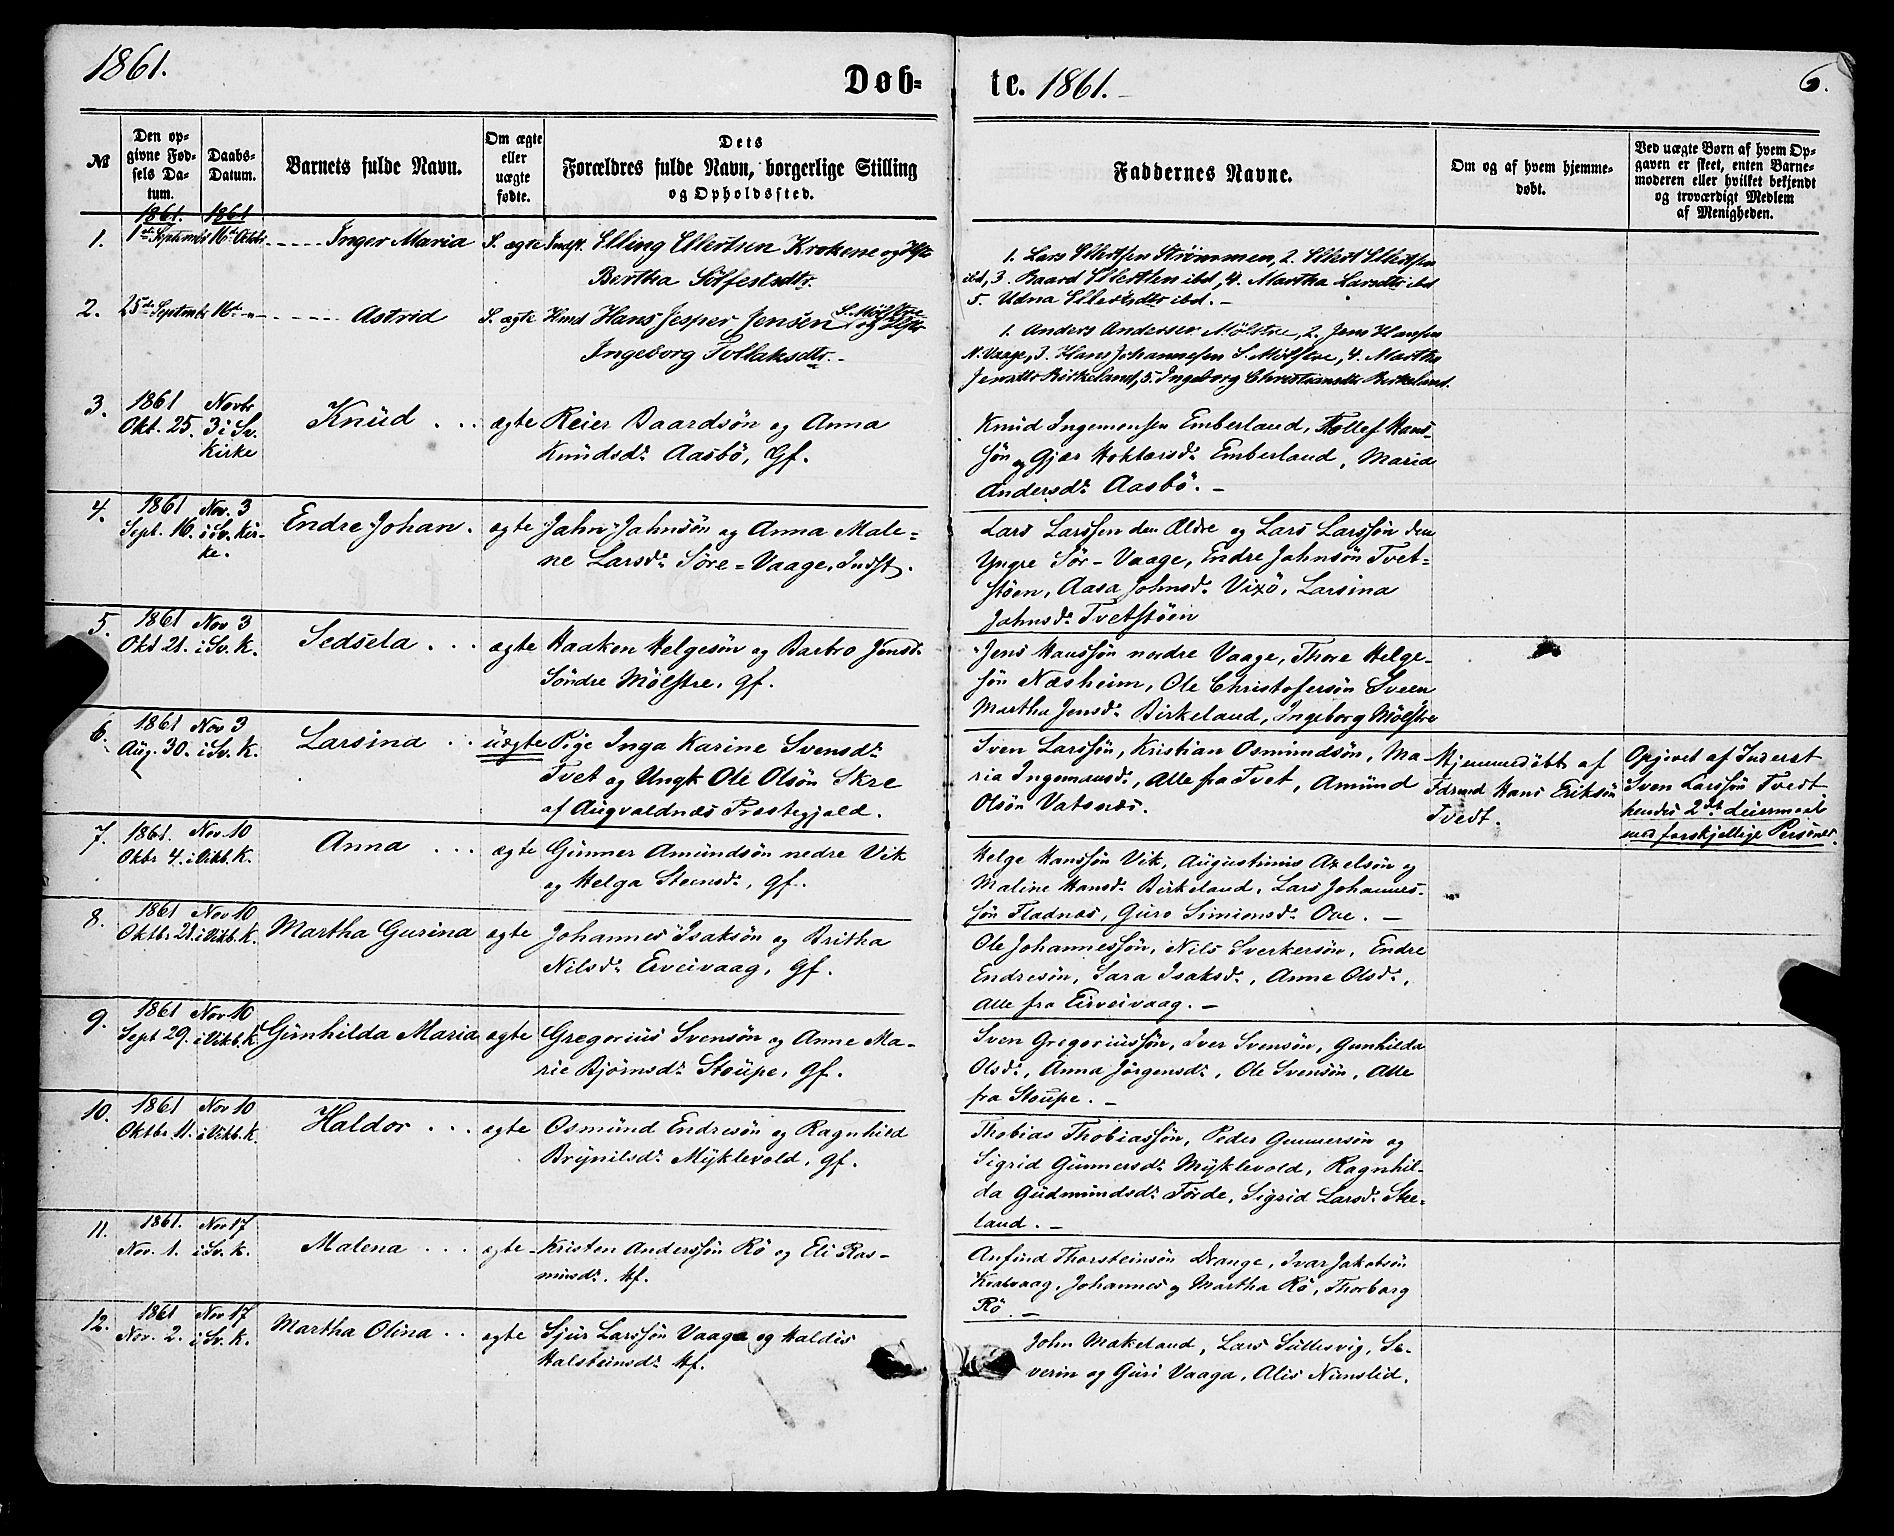 1861.
Døb-
te. 1861.-
6.
№
Den opgivne Fødsels Datum.
Daabs-Datum.
Barnets fulde Navn.
Om ægte eller uægte fødte.
Dets Forældres fulde Navn, borgerlige Stilling og Opholdssted.
Faddernes Navne.
Om og af hvem hjemmedøbt.
Ved uægte Børn af hvem Opgaven er skeet, enten Barnemoderen eller hvilket bekjendt og troværdigt Medlem af Menigheden.
1861. 1861
1. 1ste Septembr 16de Octobr Inger Maria S. ægte Indst. Elling Ellertsen Krokene og Hstr
Bertha Sølfestsdtr.
1. Lars Ellertsen Strømmen, 2. Ellert Ellertsen
ibd, 3. Baard Ellertsen ibd, 4. Martha Larsdtr ibd
5. Udna Ellertsdtr ibd. -
2. 25de Septembr 16de -"- Astrid S. ægte Hmd Hans Jesper Jensen S. Mølstre og Hstr
Ingeborg Tollaksdtr. -
1. Anders Andersen Mølstre, 2. Jens Hansen
N. Vaage, 3. Hans Johannesen S. Mølstre, 4. Martha
Jensdtr Birkeland, 5. Ingeborg Christiansdtr Birkeland.
3. 1861 Novbr
Okt. 25. 3 i Sv. Kirke Knüd ... ægte Reier Baardsön og Anna
Knüdsdr Aasbö, Gf.
Knüd Ingemonsen Emberland, Tollef Hans-
sön og Gjær Hoktorsdr Emberland, Maria
Andersdr Aasbö. -
4. 1861 Nov. 3
Sept. 16. i Sv. Kir-
ke.
Endre Johan. ægte Jahn Jahnsön og Anna Male-
ne Larsdr Söre-Vaage, Indst.
Lars Larssen den Ældre og Lars Larssön den
Yngre Sör-Vaage, Endre Jahnsön Tvet-
stöen, Aasa Johnsdr Vixö, Larsina
Jahnsdr Tvetstöen
5. 1861 Nov 3
Okt 21. i Sv. K. Sedsela ... ægte Haaken Helgesön og Barbro Jensdr
Söndre Mölstre, Gf.
Jens Hanssön nordre Vaage, Thore Helge-
sön Næsheim, Ole Christofersön Sveen
Martha Jensdr Birkeland, Ingeborg Mölstre
6. 1861 Nov 3
Aug. 30. i Sv. K. Larsina .. uægte Pige Inga Karine Svensdr
Tvet og Ungk Ole Olsön Skre
af Augvaldnæs Prestegjeld.
Sven Larssön, Kristian Osmundsön, Ma-
ria Ingemansdr, Alle fra Tvet, Amünd
Olsön Vatsnæs.
Hjemmedöbt af
Formd Hans Eriksön
Tvedt.
Opgivet af Inderst
Sven Larssön Tvedt.
hendes 2det Leiermaal
med forskjellige Personer.
7. 1861. Nov. 10
Oktbr 4. i Vikb. K. Anna ... ægte Günner Amündsön nedre Vik
og Helga Steensdr, Gf.
Helge Hanssön Vik, Augustinus Axelsön og
Maline Hansdr Birkeland, Lars Johannes-
sön Fladnæs, Guro Simionsdr Ove. -
8. 1861 Nov 10
Oktbr. 21. i Vikb. K. Martha Gurina ægte Johannes Isaksön og Britha
Nilsdr Erveivaag, Gf.
Ole Johannessön, Nils Sverkersön, Endre
Endresön, Sara Isaksdr, Anne Olsdr,
Alle fra Eirveivaag. -
9. 1861 Nov 10
Sept 29. i Vikb. K. Günhilda Maria ægte Gregorius Svensön og Anne Ma-
rie Björnsdr Stoüpe, Gf.
Sven Gregoriussön, Iver Svensön, Gunhilda
Olsdr, Anna Jörgensdr, Ole Svensön, Alle
fra Stoupe. -
10. 1861 Nov 10
Oktbr 11. i Vikb. K. Haldor ... ægte Osmünd Endresön og Ragnhild
Brynilsdr Myklevold, Gf.
Thobias Thobiassön, Peder Gunnersön og
Sigrid Günnersdr Myklevold, Ragnhil-
da Güdmündsdr Förde, Sigrid Larsdr Ske-
land. -
11. 1861. Nov 17
Nov. 1. i Sv. K. Malena ... ægte Kristen Anderssön Rö og Eli Ras-
musdr. Hf.
Anfind Thorsteinsön Drange, Ivar Jakobsön
Kvalvaag, Johannes og Martha Rö, Thorborg
Rö. -
12. 1861 Nov 17
Nov. 2. i Sv. K. Martha Olina .. ægte Sjur Larssön Vaaga og Haldis
Halsteinsdr Hf.
John Makeland, Lars Süllesvig, Se-
verin og Güri Vaaga, Alis Nimslid.